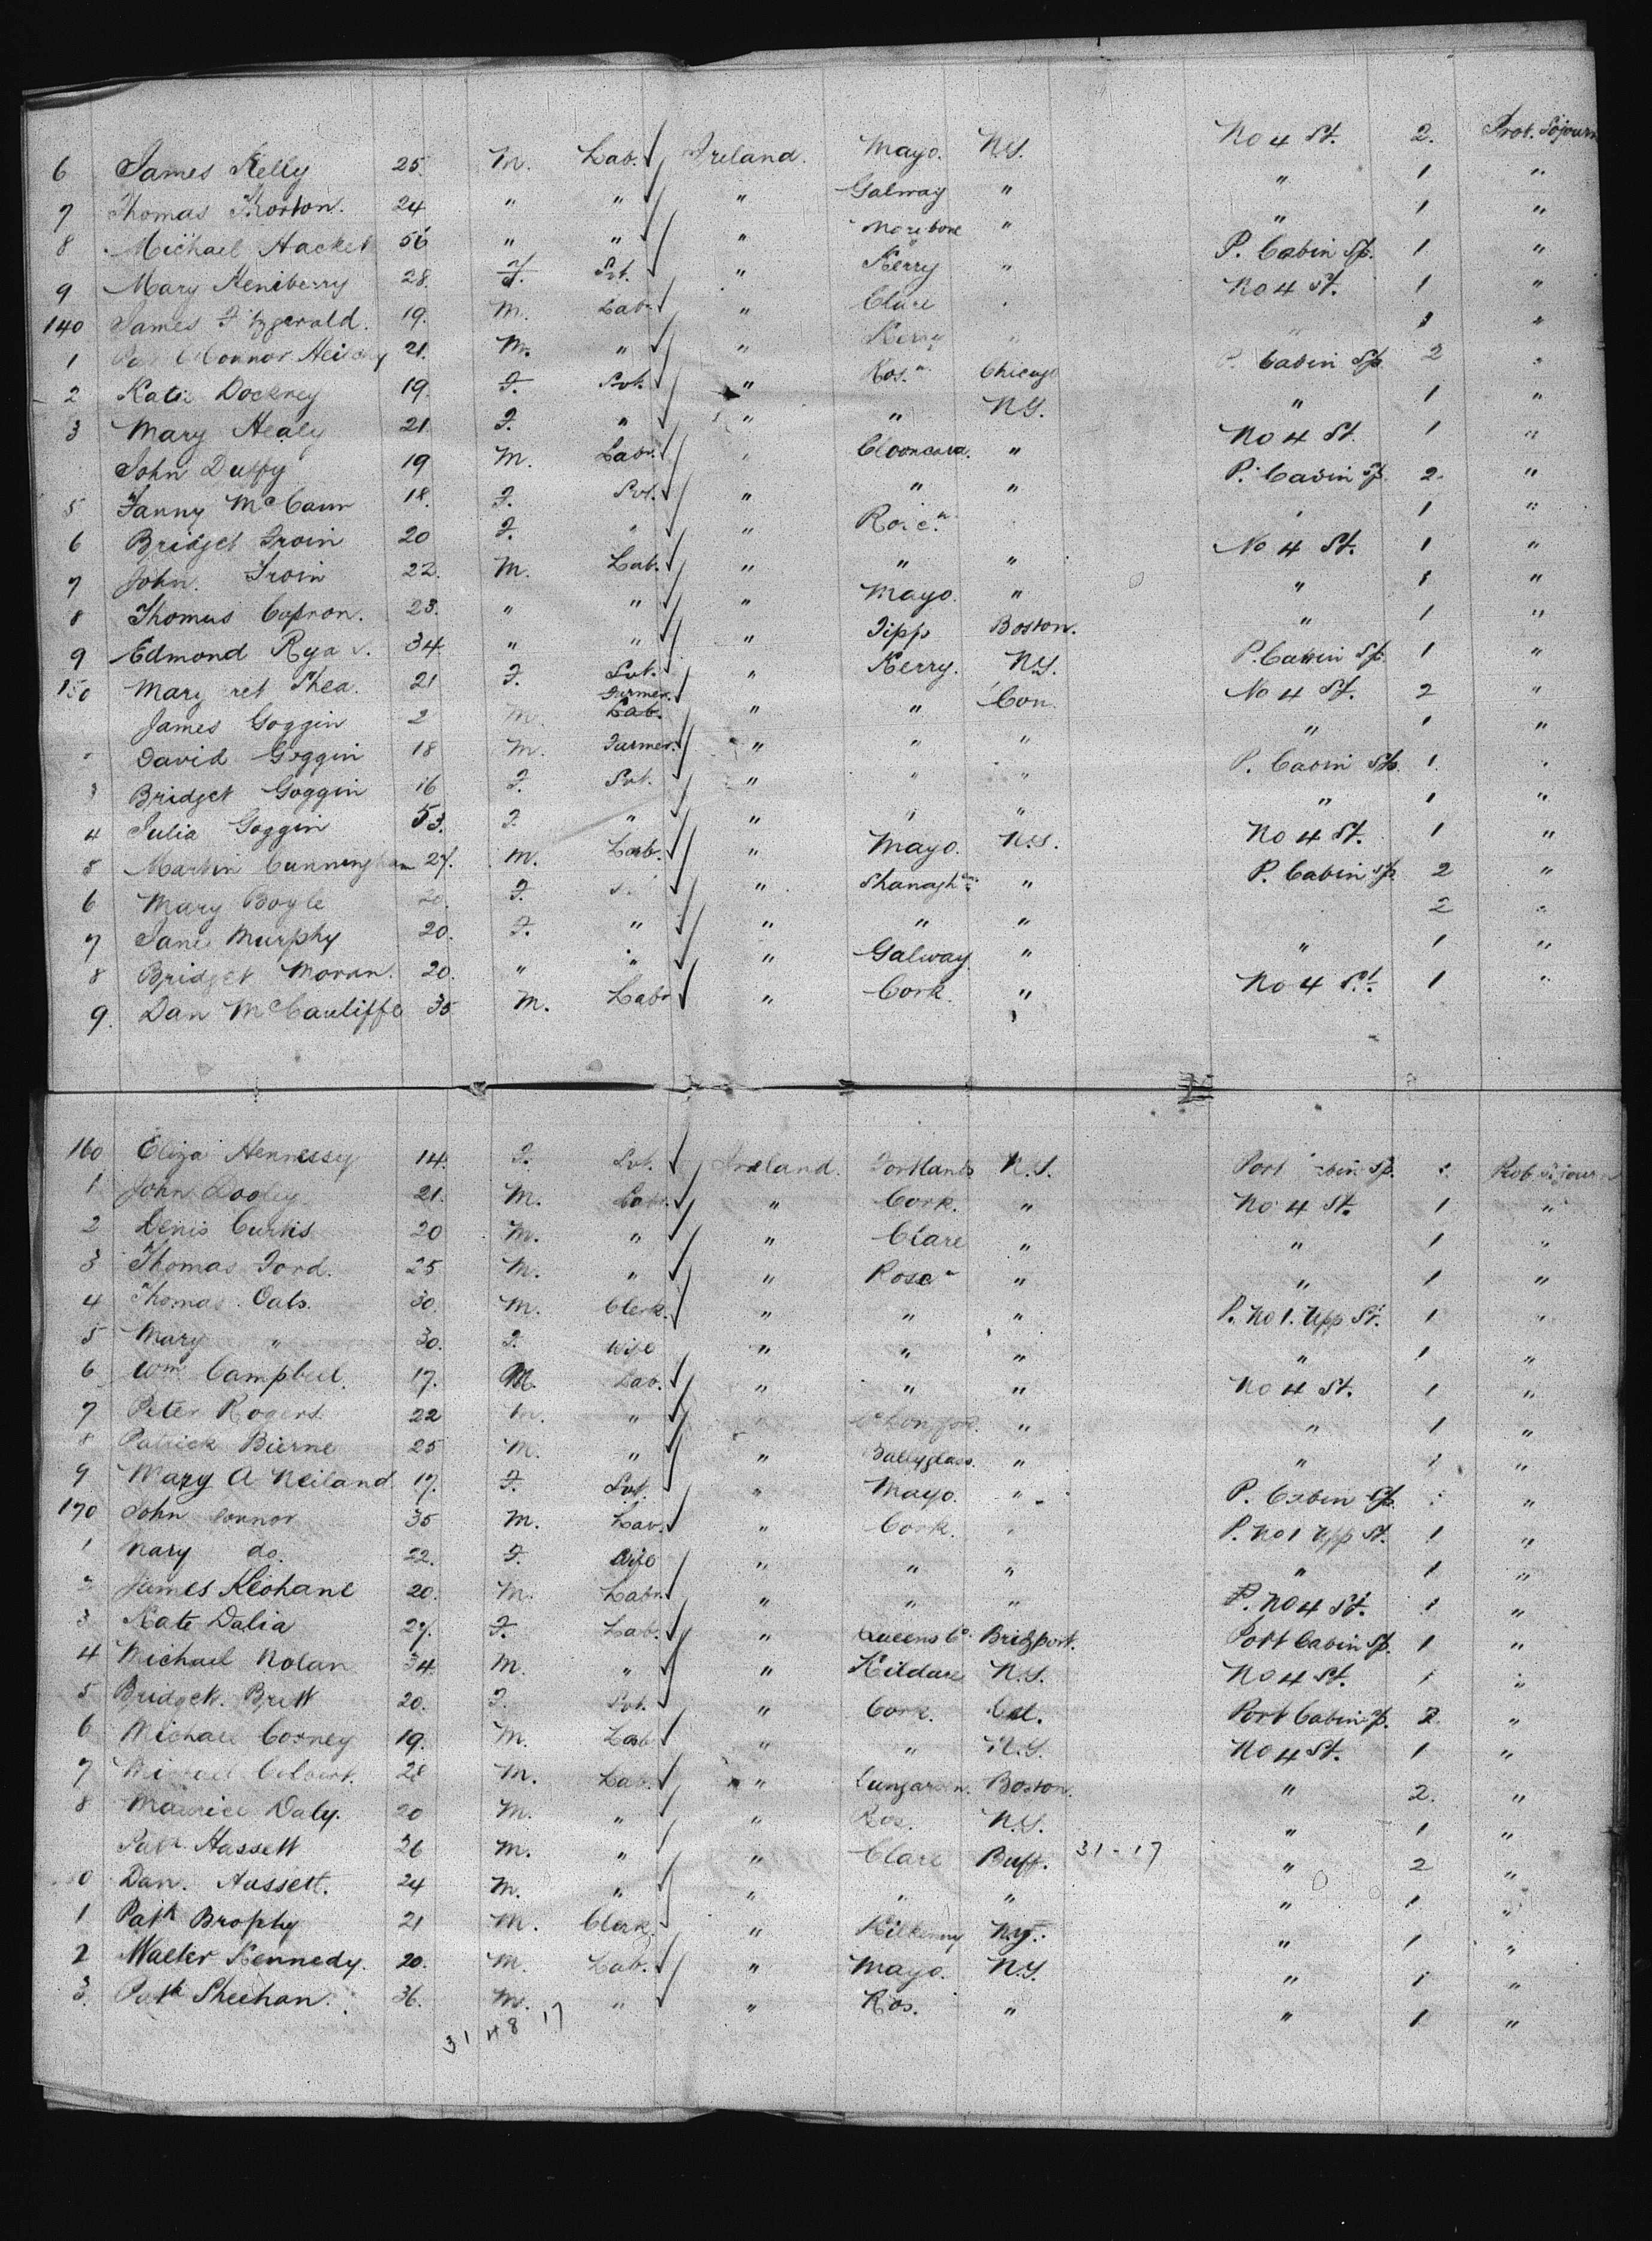 6 James Kelly 25. M. Lab. Ireland. Mayo. N.Y. No 4 St. 2. Prob. Sojourn
7 Thomas Horton. 24 " " " Galway " " 1 "
8 Michael Hacket 56 " " " " " 1 "
9 Mary Heniberry 28. F. Svt. " Kerry " P. Cabin Sp. 1 "
140 James Fitzgerald. 19. M. Lab. " Clare No 4 St. 1 "
1 Connor 21. M. " " Kerry " 1 "
2 Katie Dockney 19. F. Svt. " Ros. Chicago P. Cabin Sp. 2
3 Mary Healy 21 F. " " " N.Y. " 1 "
John Duffy 19 M. Labr. Clooncara. " No 4 St. 1 "
5 Fanny McCann 18. F. Svt. " " " P. Cabin Sp. 2. "
6 Bridget Irvin 20 F. " " 1 "
7 John Irvin 22. M. Lab. " " " No 4 St. 1 "
8 Thomas 23. " " " Mayo. " " 1 "
9 Edmond Ryan. 34 " " " Tipp Boston. " 1 "
150 Margaret Shea. 21 F. Svt. " Kerry. N.Y. P. Cabin Sp. 1 "
James Goggin 2 M. Farmer. Lab. " " Con. No 4 St. 2 "
David Goggin 18 M. Farmer. " " " " 1 "
3 Bridget Goggin 16 F. Svt. " " " P. Cabin Sp. 1
4 Julia Goggin 53. F. " " " " " 1 "
5 Martin Cunningham 27. M. Lab. " Mayo. N.Y. No 4 St. 1 "
6 Mary Boyle 20. F. " " P. Cabin Sp. 2 "
7 Jane Murphy 20. F. " " " " 2 "
8 Bridget Moran. 20. " " " Galway " " 1 "
9. Dan McCauliffe 35 M. Labr " Cork. " No 4 St. 1 "
160 Eliza Hennessey 14. F. Svt. Ireland. N.Y. Port Cabin Sp. Prob Sojourn
1 John Dooley 21. M. Labr. " Cork. " No 4 St. 1 "
2 Denis Curtis 20 M. " " Clare " " 1 "
3 Thomas Ford. 25 M. " " Rosc " " 1 "
4 Thomas Oats. 30. M. Clerk. " " " P. No 1. Upp St. 1 "
5 Mary " 30. F. Wife " " " " 1 "
6 Wm Campbell. 17. M. Lab. " " " No 4 St. 1 "
7 Peter Rogers. 22 M. " " " " 1 "
8 Patrick Bierne 25 M. " " Ballyglass. " " 1 "
9 Mary A Neiland 17. F. Svt. " Mayo. " P. Cabin Sp. "
170 John Connor 35 M. Lab. " Cork. " P. No 1 Upp St. 1 "
1 Mary do. 22. F. Wife " " " " 1 "
2 James Keohane 20. M. Labr. " " " P. No 4 St. 1 "
3 Kate Dalia 27. F. Lab. " Queens Co. Bridgport. Port Cabin Sp. 1 "
4 Michael Nolan 34. M. " " Kildare N.Y. No 4 St. 1 "
5 Bridget. Britt 20. F. Svt. " Cork. Cal. Port Cabin Sp. 2. "
6 Michael Corney 19. M. Lab " " N.Y. No 4 St. 1 "
7 Michael Colbert. 28 M. Lab. " Dungarvan. Boston. " 2. "
8 Maurice Daly. 20 M. " " Ros. N.Y. " 1 "
Patk Hassett 26 M. " " Clare Buff. 31-17 " 2 "
0 Dan. Hassett. 24 M. " " " " " 1 "
1 Patk Brophy 21 M. Clerk. " Kilkenny N.Y. " 1 "
2 Walter Kennedy. 20. M. Lab. " Mayo. N.Y. " 1 "
3. Patk Sheehan. 36. M. " " Ros. " " 1 "
31 48 17